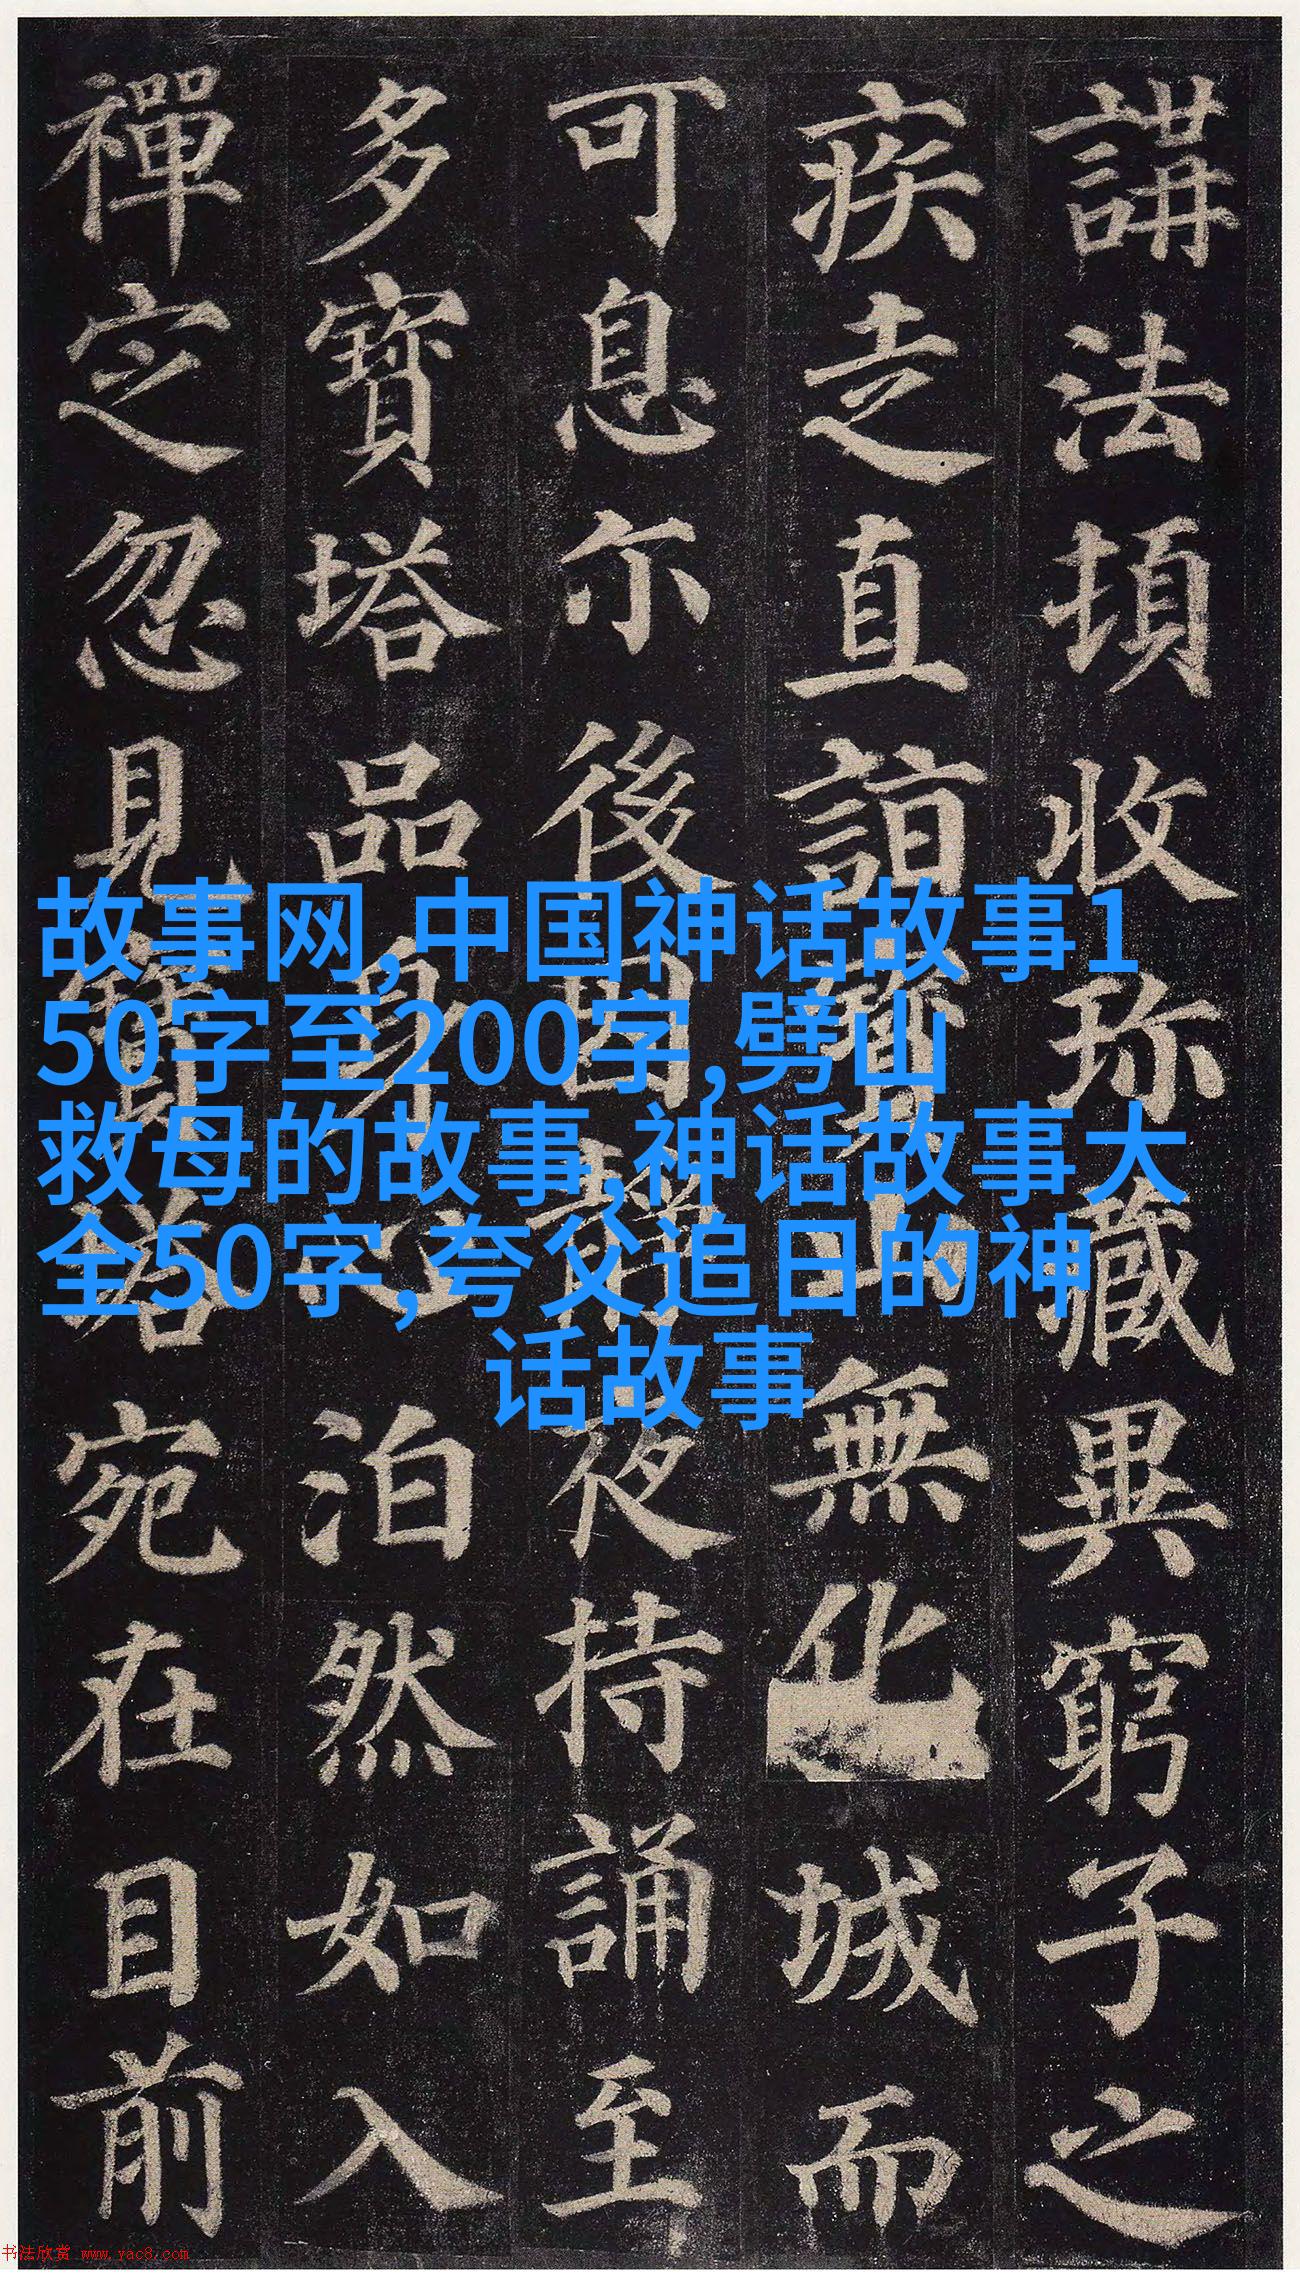 講法頓收珎藏異窮子之
疾走直詣寶山無化城而
可息尔後因靜夜持誦至
多寶塔品身心泊然如入
禪定忽見寶塔宛在目前
故事网,中国神话故事1
50字至200字,劈山
救母的故事,神话故事大
全50字,夸父追日的神
话故事
书法欣赏 www.yac8.com